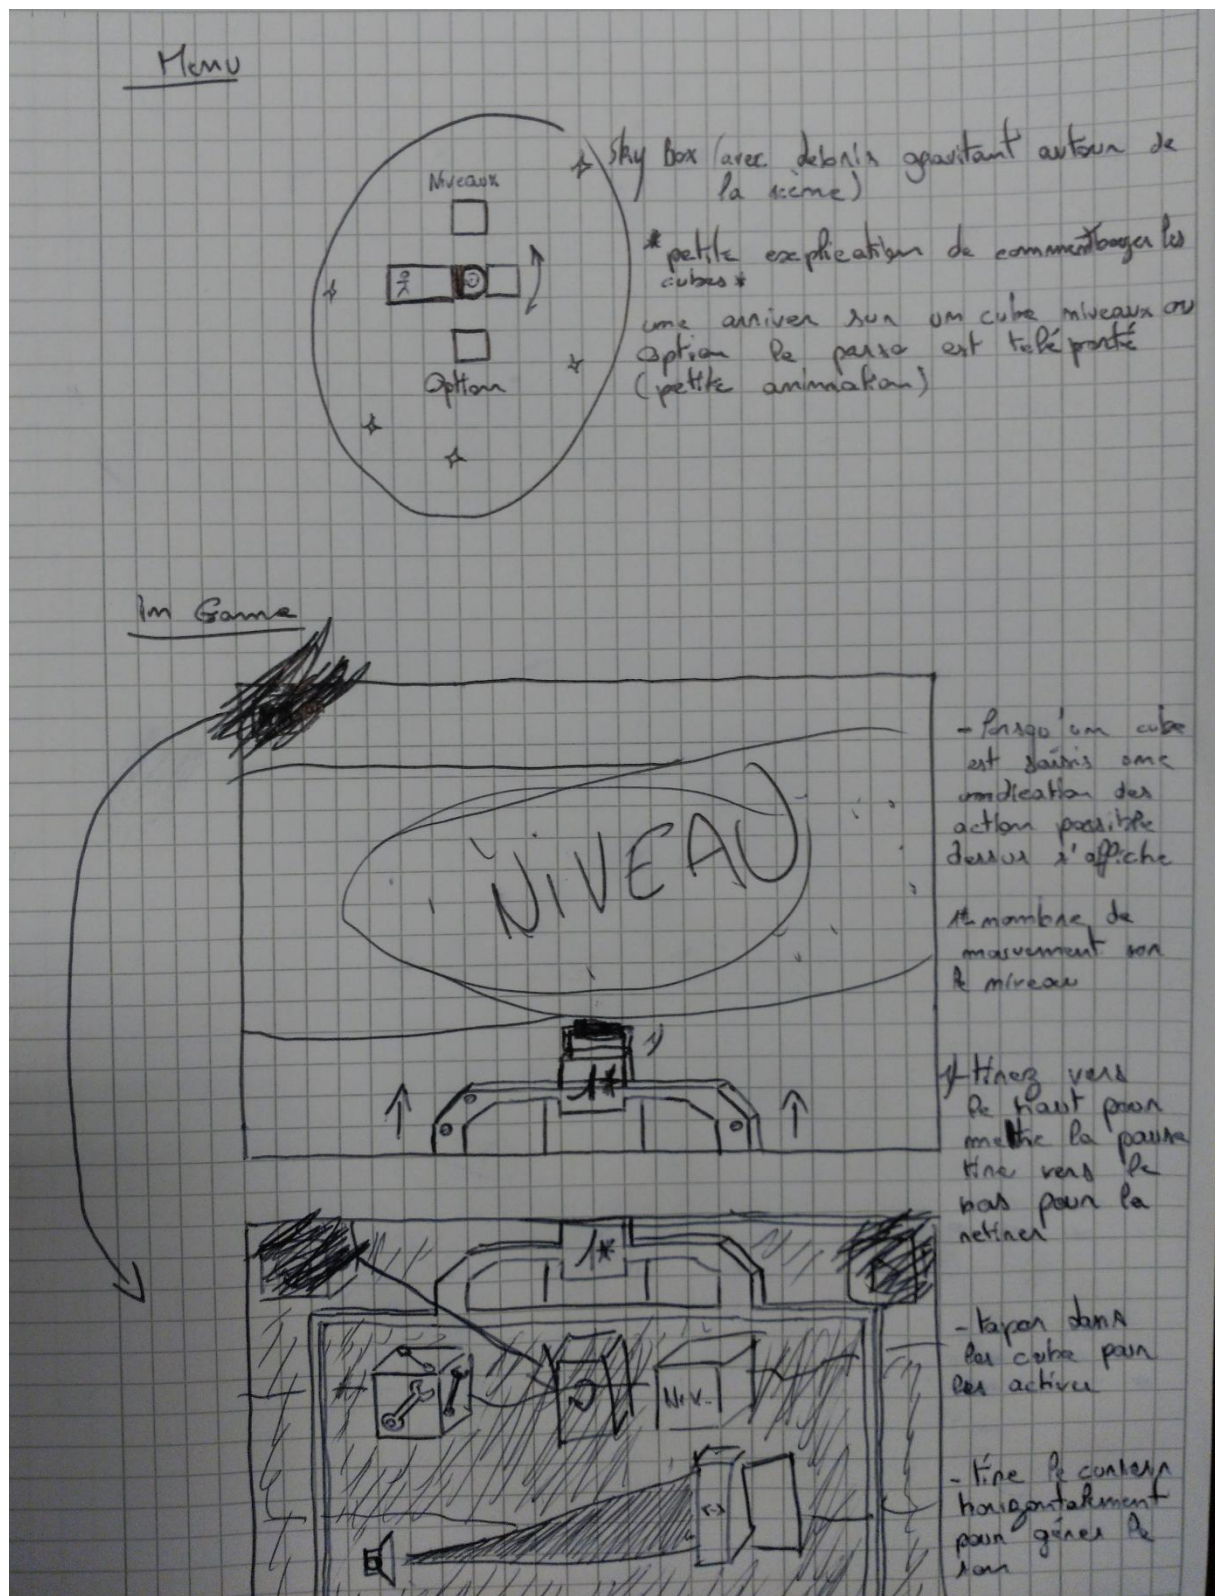 Menu
Sky Box (avec debris gravitant autour de
la scène)
Niveaux
*petite explication de comment bouger les
cubes*
une arriver sur un cube niveaux ou
option le perso est téléporté
(petite animation)
Option
In Game
- lorsqu'un cube
est saisis une
indication des
action possible
dessus s'affiche
NIVEAU
1* nombre de
mouvement sur
le niveau
1/
1*
1/ tirez vers
le haut pour
mettre la pause
tire vers le
bas pour la
retirer
1*
- taper dans
les cube pour
les activer
NIV.
- tire le curseur
horizontalement
pour gérer le
son